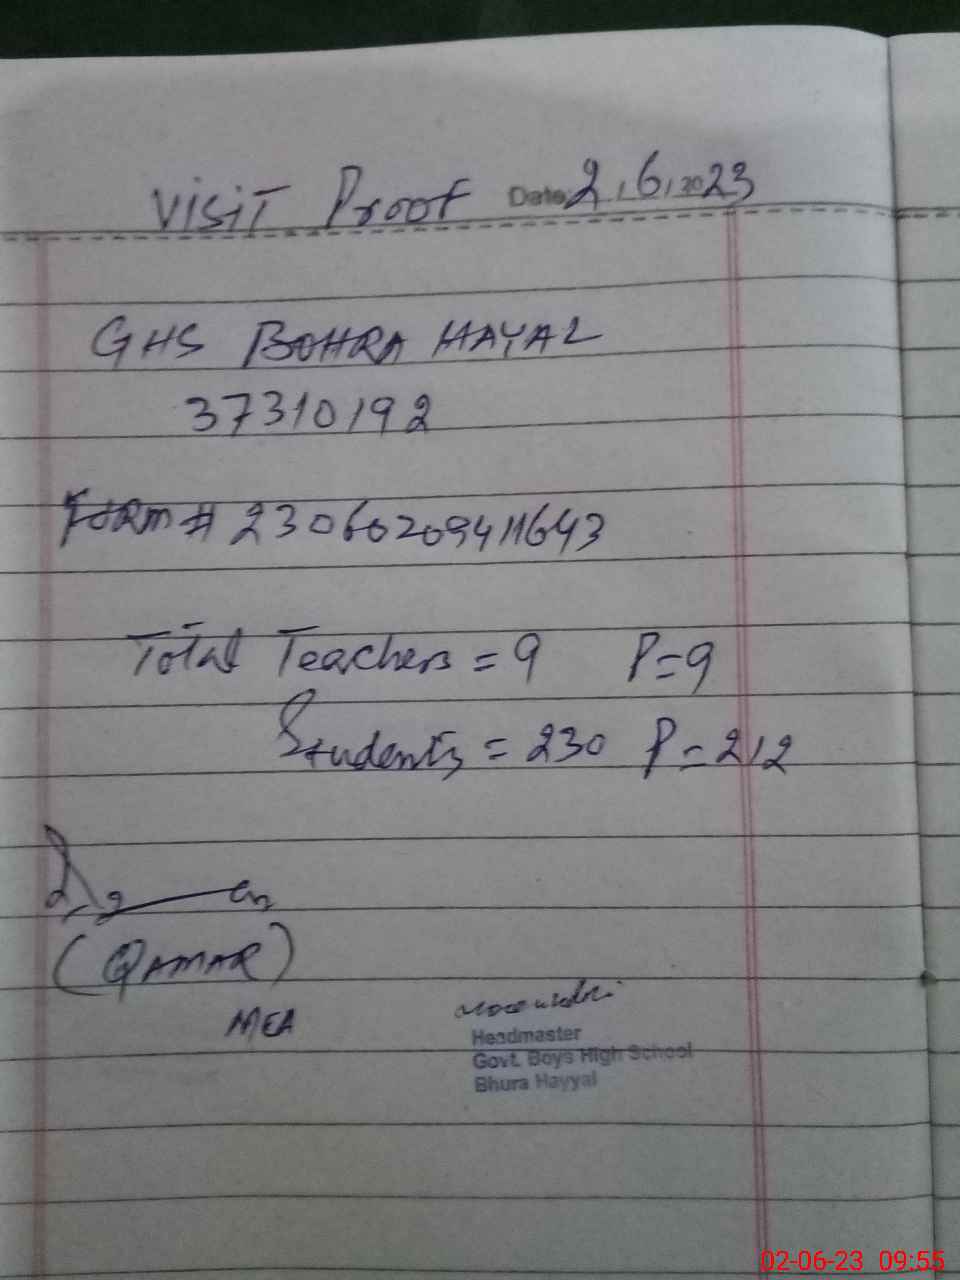 Visit Proof Date 2.6.2023
GHS BOHRA HAYAL
37310192
Form # 23060209411643
Total Teachers = 9 P=9
Students = 230 P=212
(QAMAR)
MEA
Headmaster
Govt. Boys High School
Bhura Hayyal
02-06-23 09:55